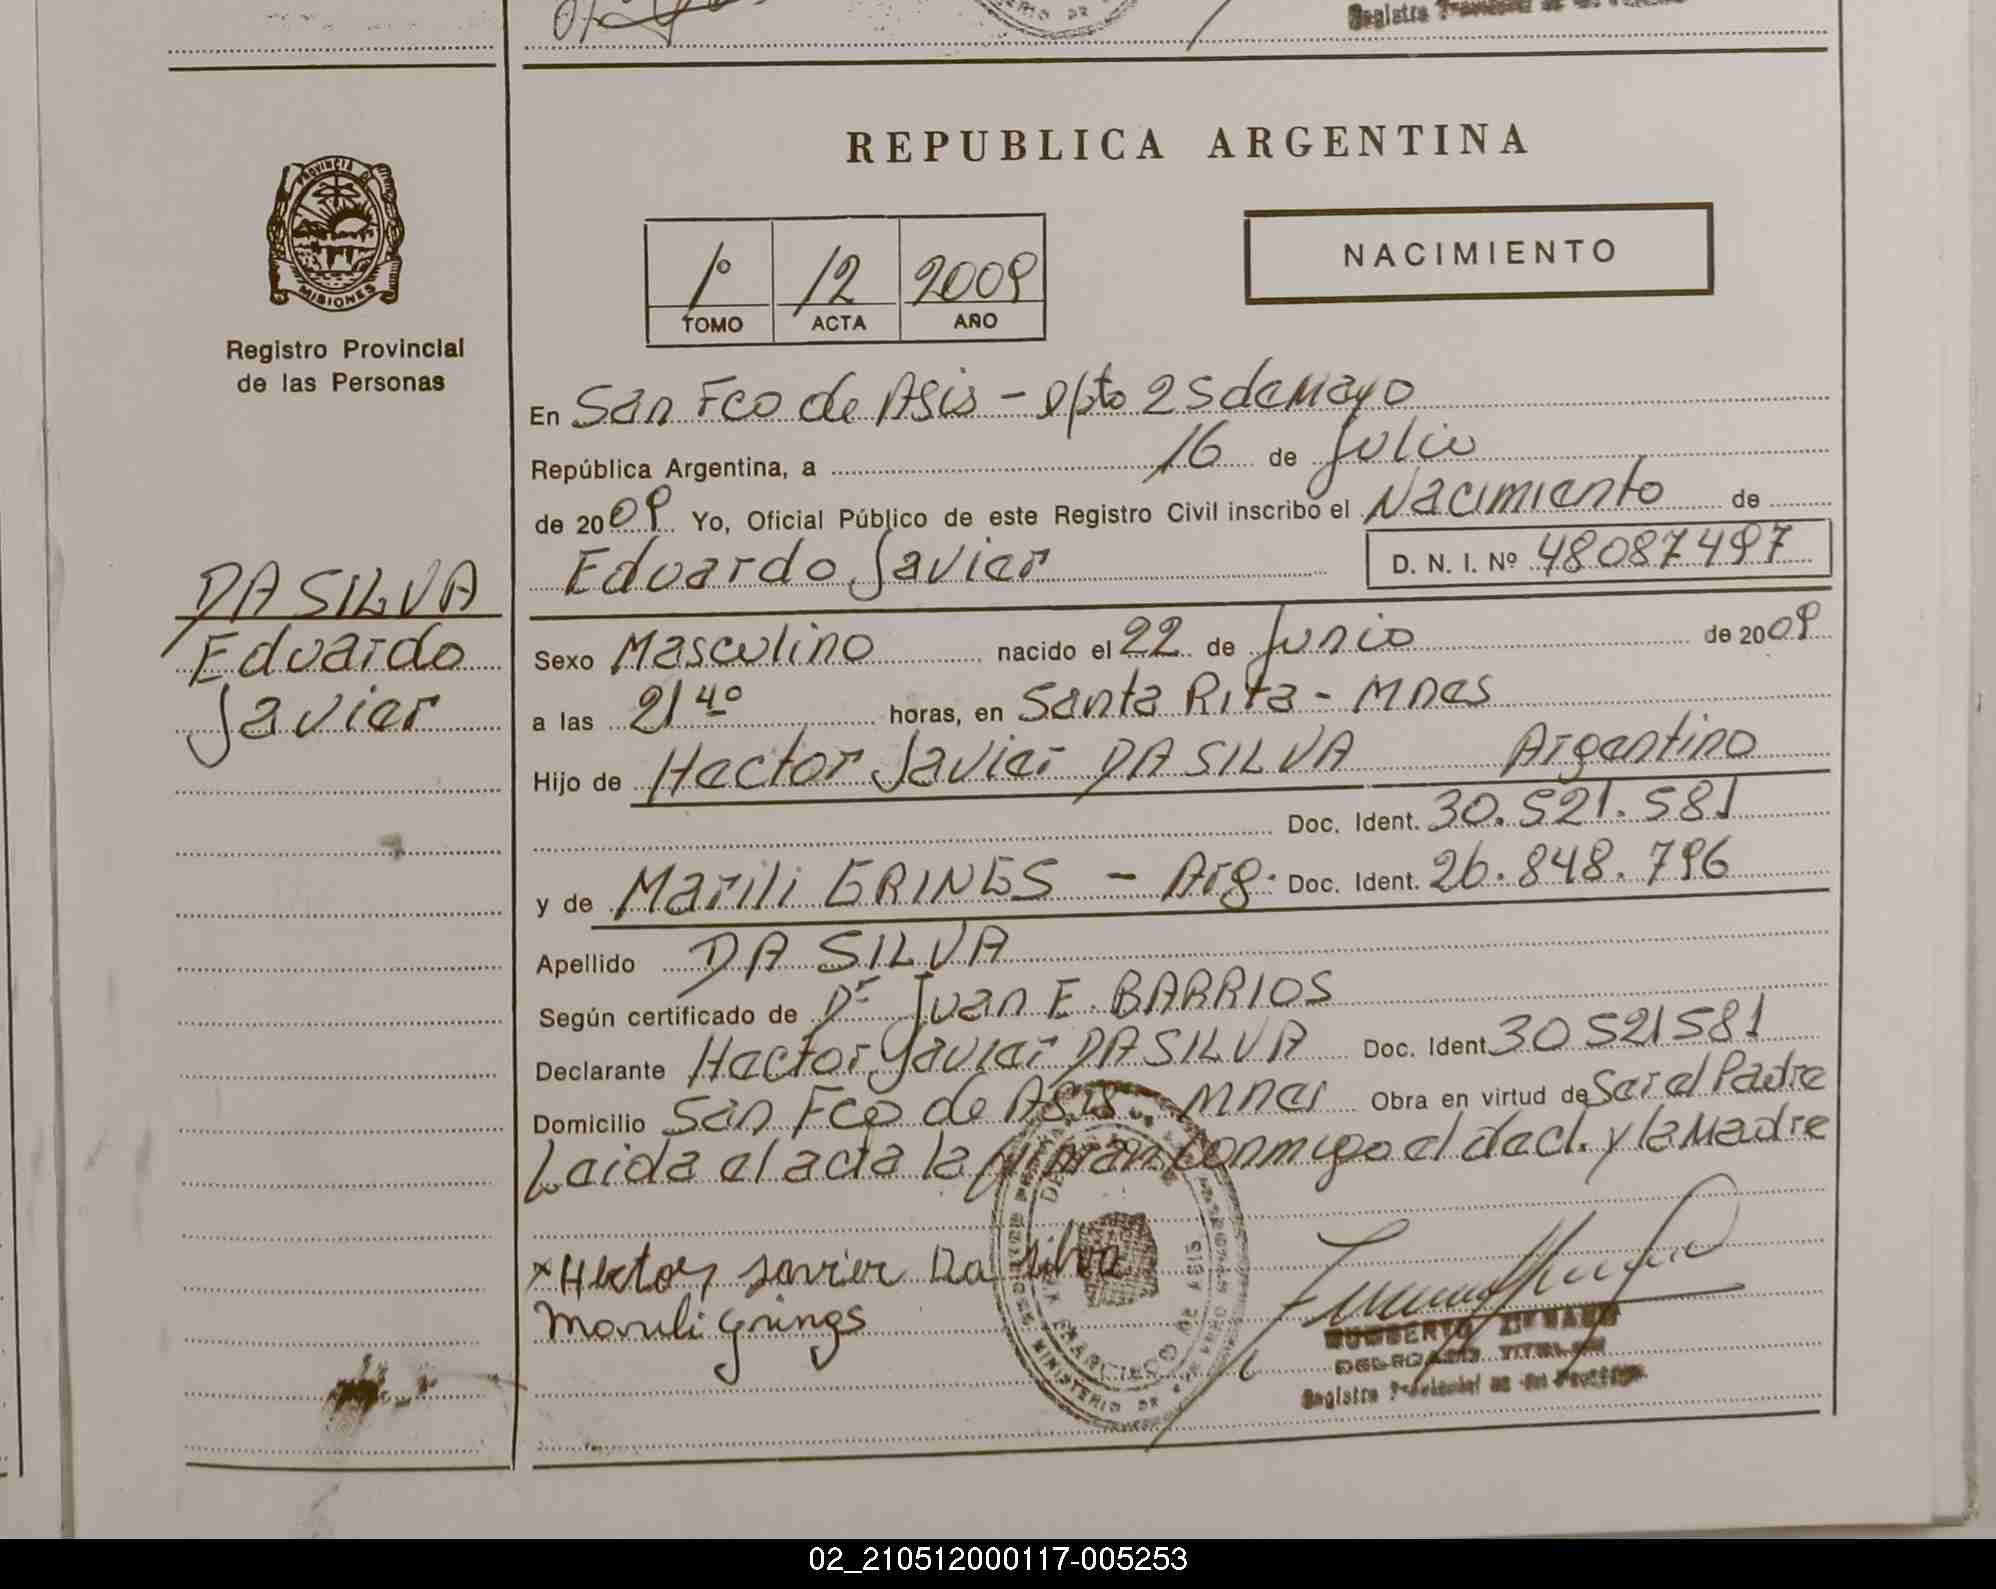 Registro Provincial de las
REPUBLICA ARGENTINA
PROVINCIA DE
MISIONES
Registro Provincial
de las Personas
1º 12 2009
TOMO ACTA AÑO
NACIMIENTO
En San Fco de Asis - Dpto 25 de Mayo
República Argentina, a 16 de Julio
de 2009 Yo, Oficial Público de este Registro Civil inscribo el Nacimiento de
Eduardo Javier D. N. I. Nº 48087497
DA SILVA
Eduardo
Javier
Sexo Masculino nacido el 22 de Junio de 2009
a las 21 40 horas, en Santa Rita - Mnes
Hijo de Hector Javier DA SILVA Argentino
Doc. Ident. 30.521.581
y de Marili GRINGS - Arg. Doc. Ident. 26.848.796
Apellido DA SILVA
Según certificado de Dr Juan E. BARRIOS
Declarante Hector Javier DA SILVA Doc. Ident 30 521581
Domicilio San Fco de Asis - Mnes Obra en virtud de Ser el Padre
Leida el acta la firman conmigo el decl. y la Madre
x Hector Javier Da Silva
Marili Grings
MINISTERIO DE
DE ASIS
DELEGADO TITULAR
Registro Provincial de las Personas
02_210512000117-005253